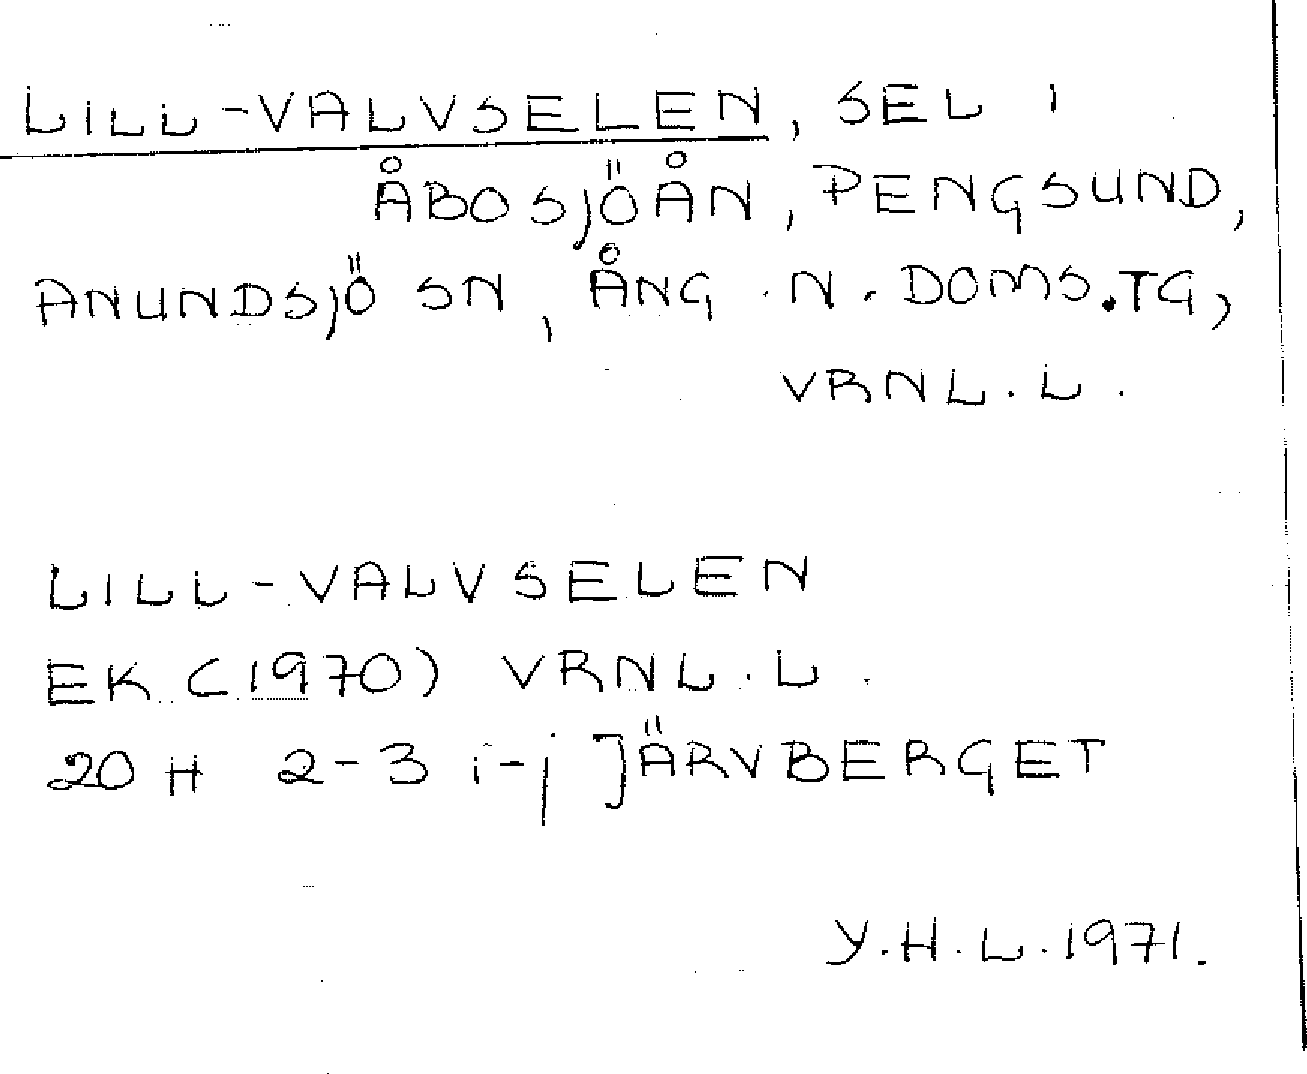 LILL-VALVSELEN, SEL I
ÅBOSJÖÅN, PENGSUND,
ANUNDSJÖ SN, ÅNG. N. DOMS.TG,
VRNL.L.
LILL-VALVSELEN
EK (1970) VRNL.L.
20 H 2-3 i-j JÄRVBERGET
Y.H.L.1971.